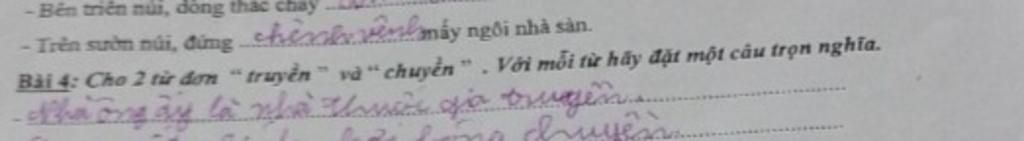 - Bên triền núi, dòng thác chảy
- Trên sườn núi, đứng chênh vênh mấy ngôi nhà sàn.
Bài 4: Cho 2 từ đơn “ truyền ” và “ chuyền ” . Với mỗi từ hãy đặt một câu trọn nghĩa.
- Nhà ông ấy là nhà thuốc gia truyền.
chuyền